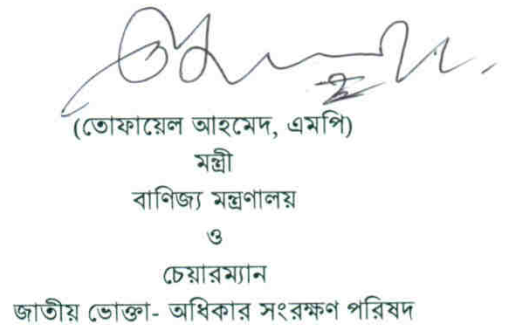 (তোফায়েল আহমেদ, এমপি)
মন্ত্রী
বাণিজ্য মন্ত্রণালয়
ও
চেয়ারম্যান
জাতীয় ভোক্তা- অধিকার সংরক্ষণ পরিষদ